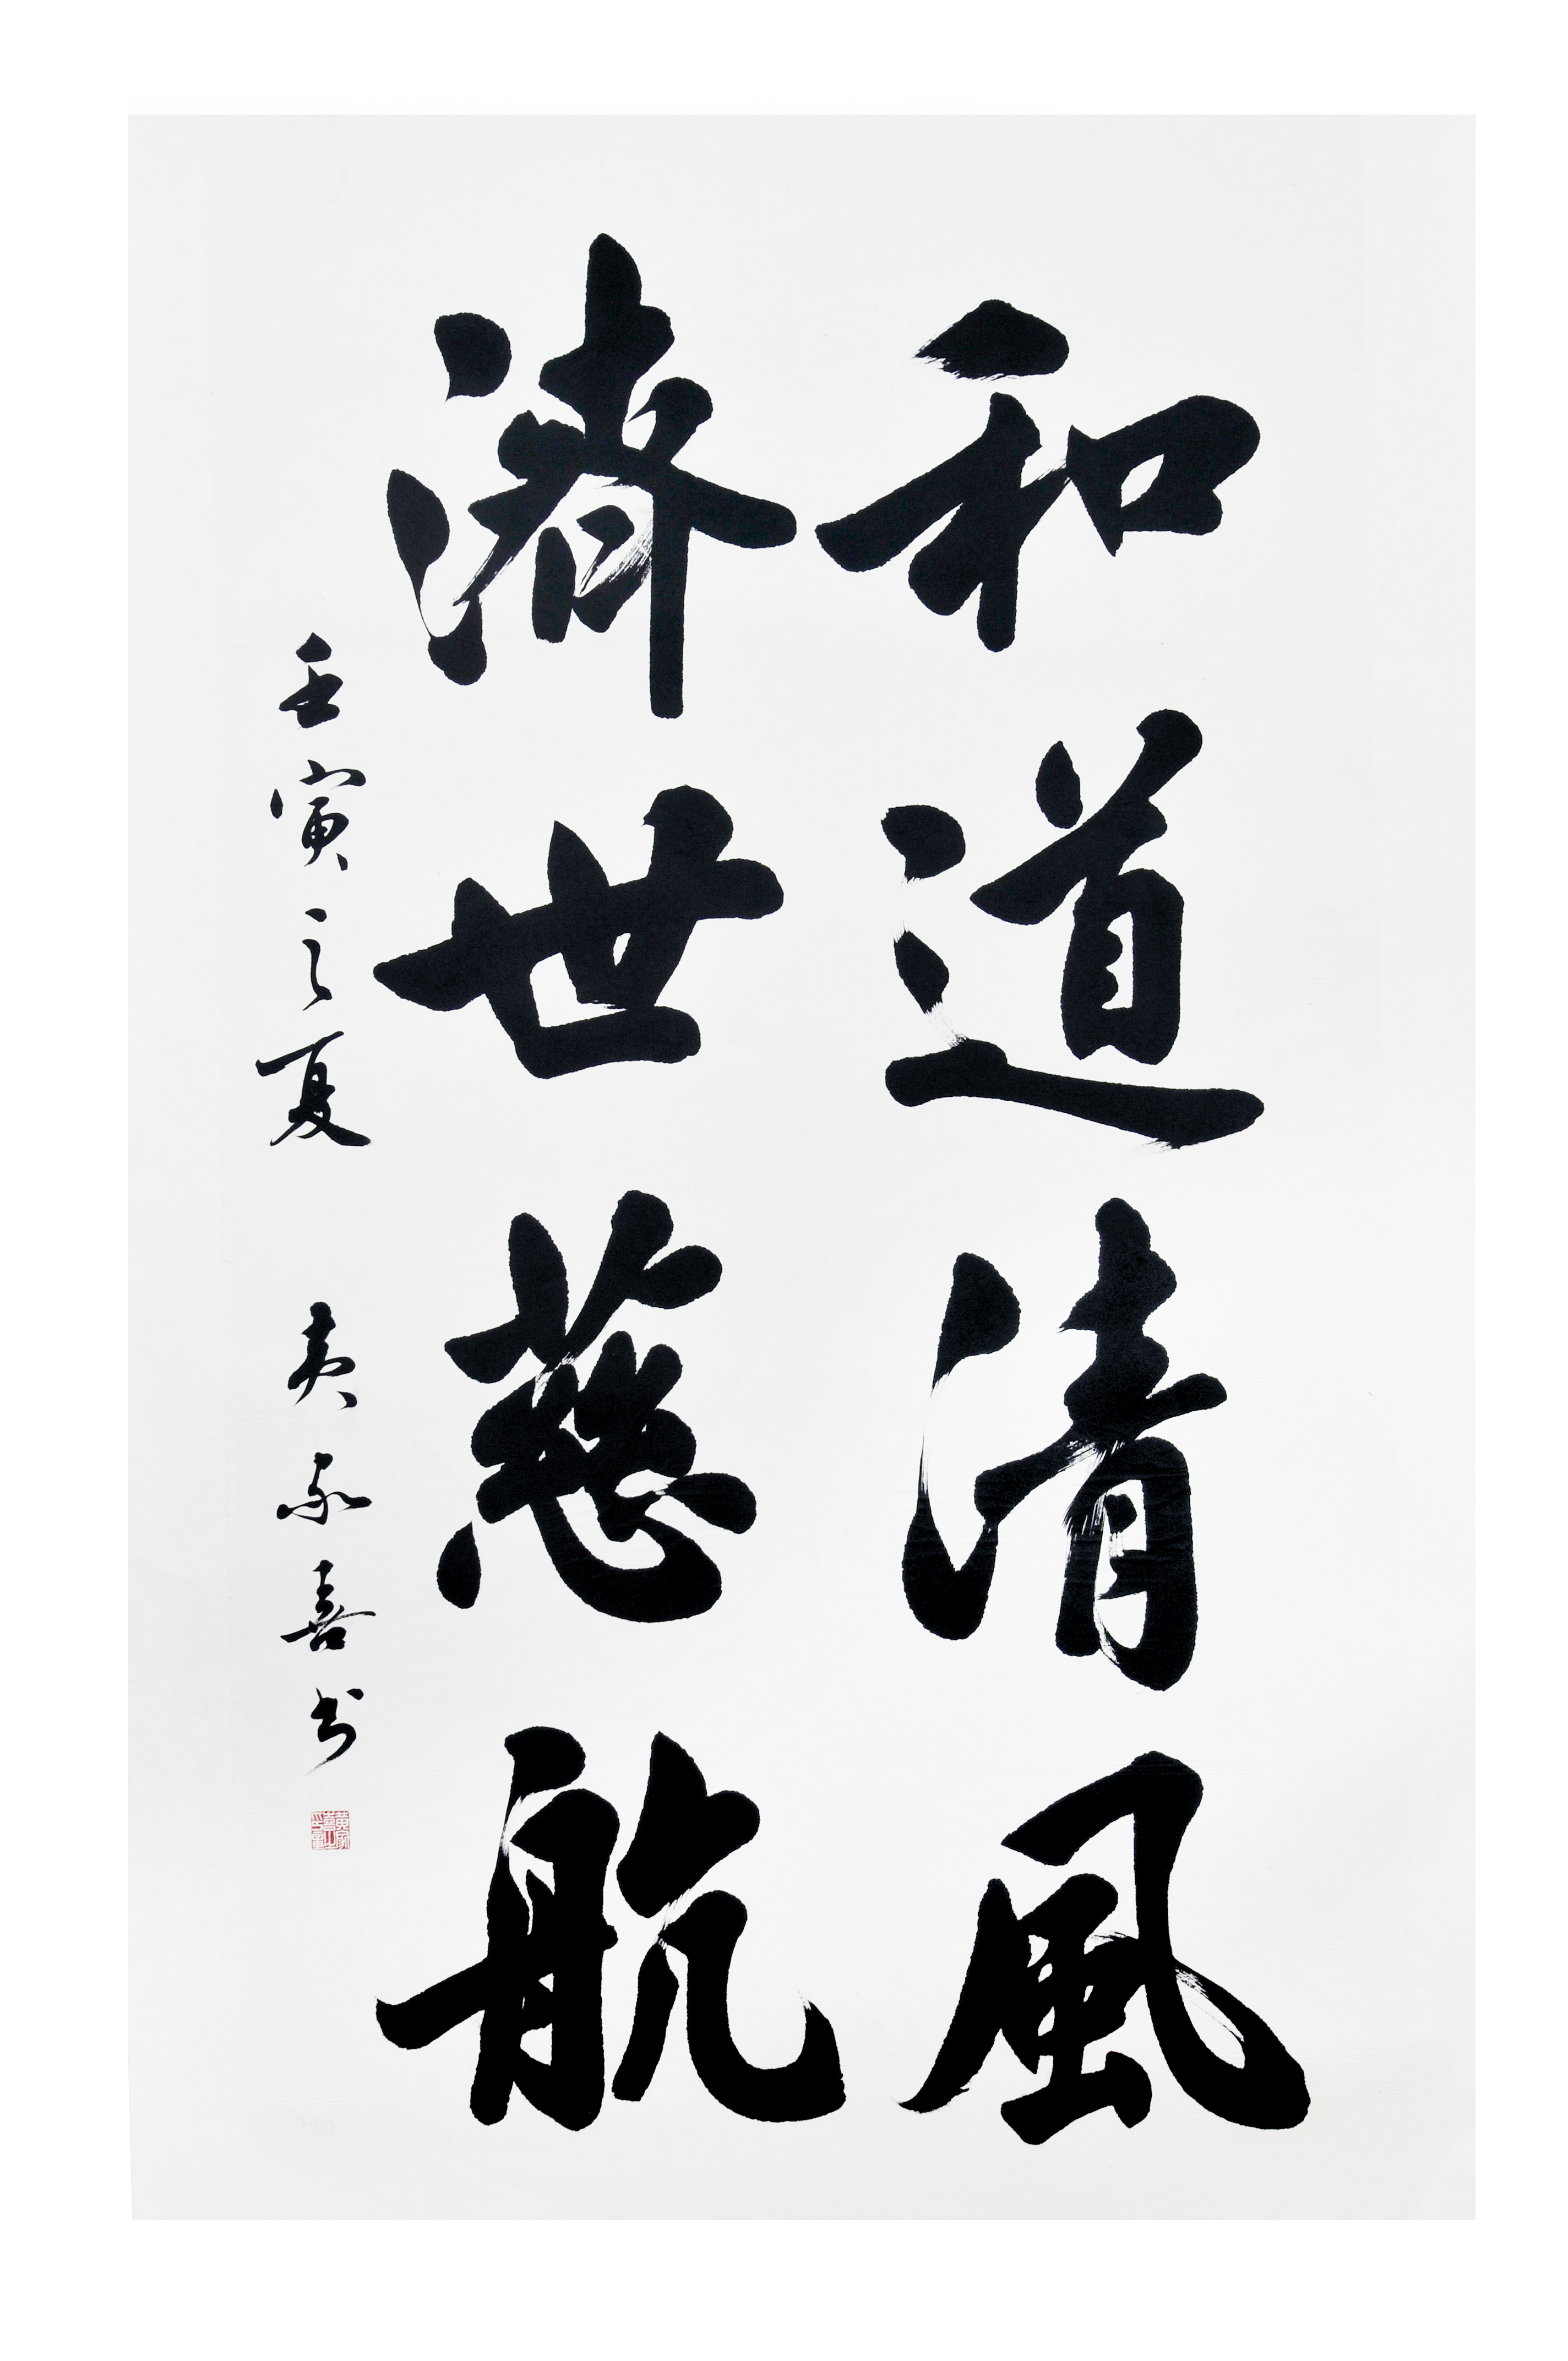 和道清風
濟世慈航
壬寅之夏 黄永喜书